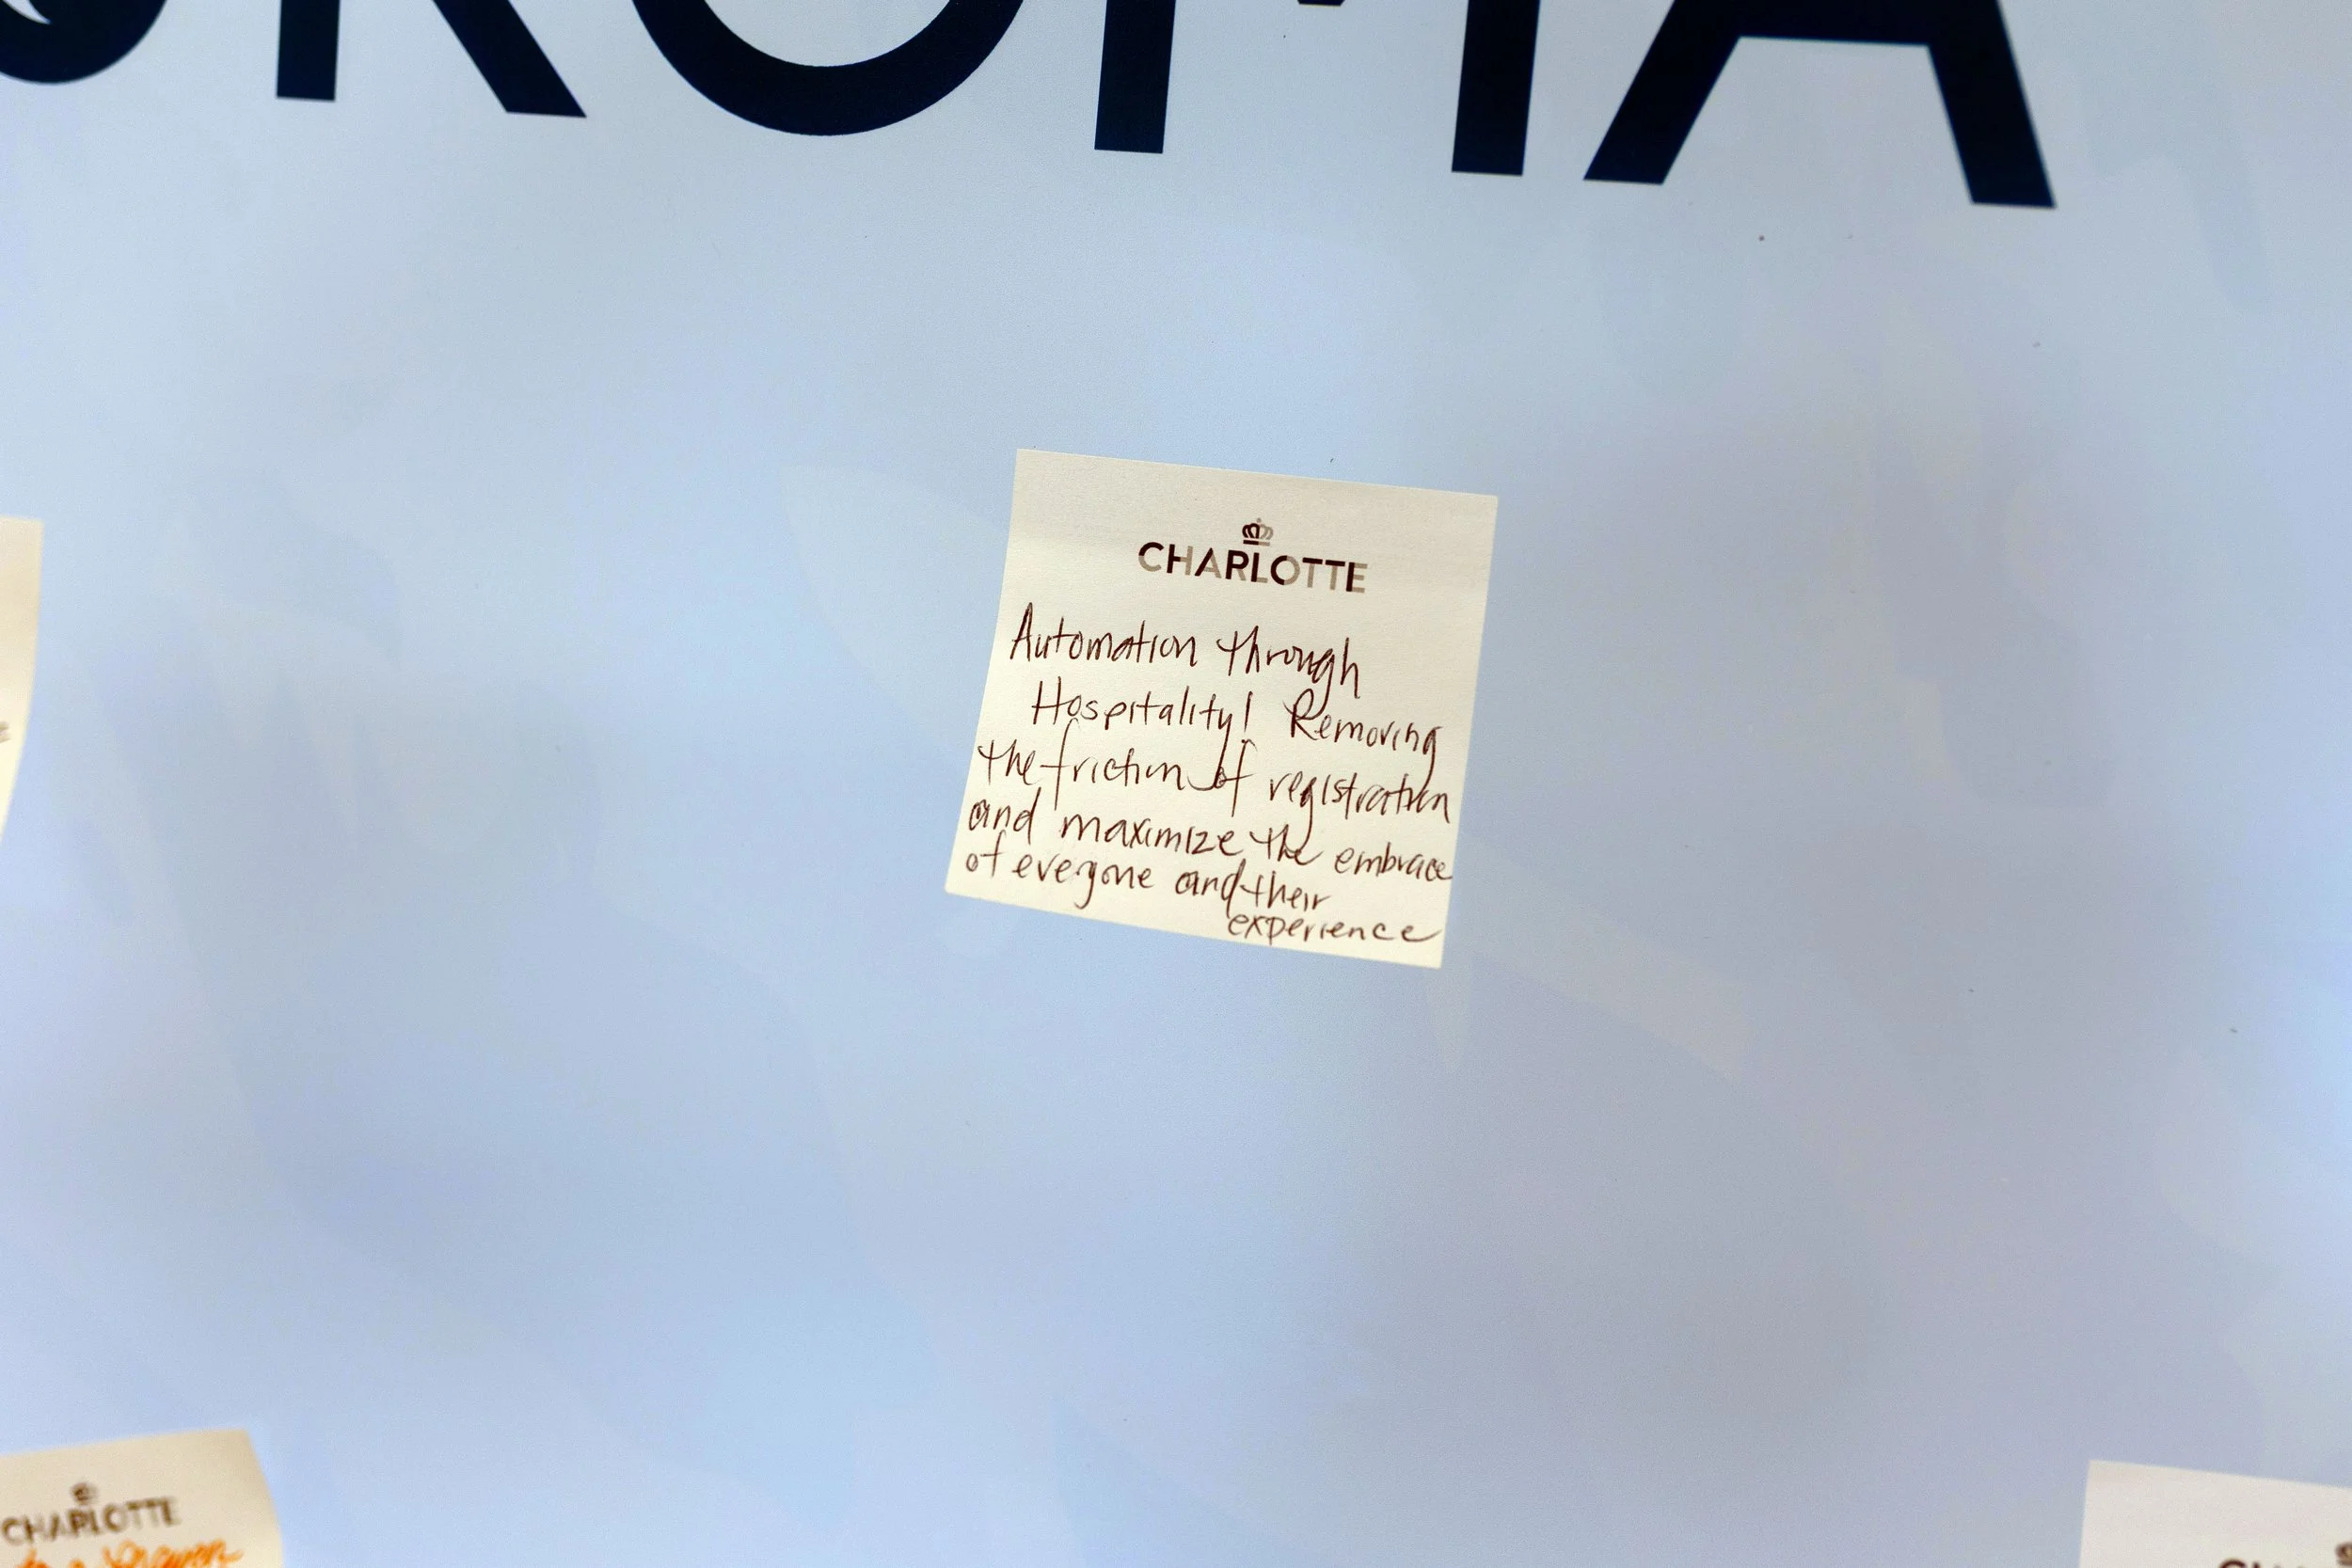 CHARLOTTE
Automation through
Hospitality! Removing
the friction of registration
and maximize the embrace
of everyone and their
experience
CHARLOTTE